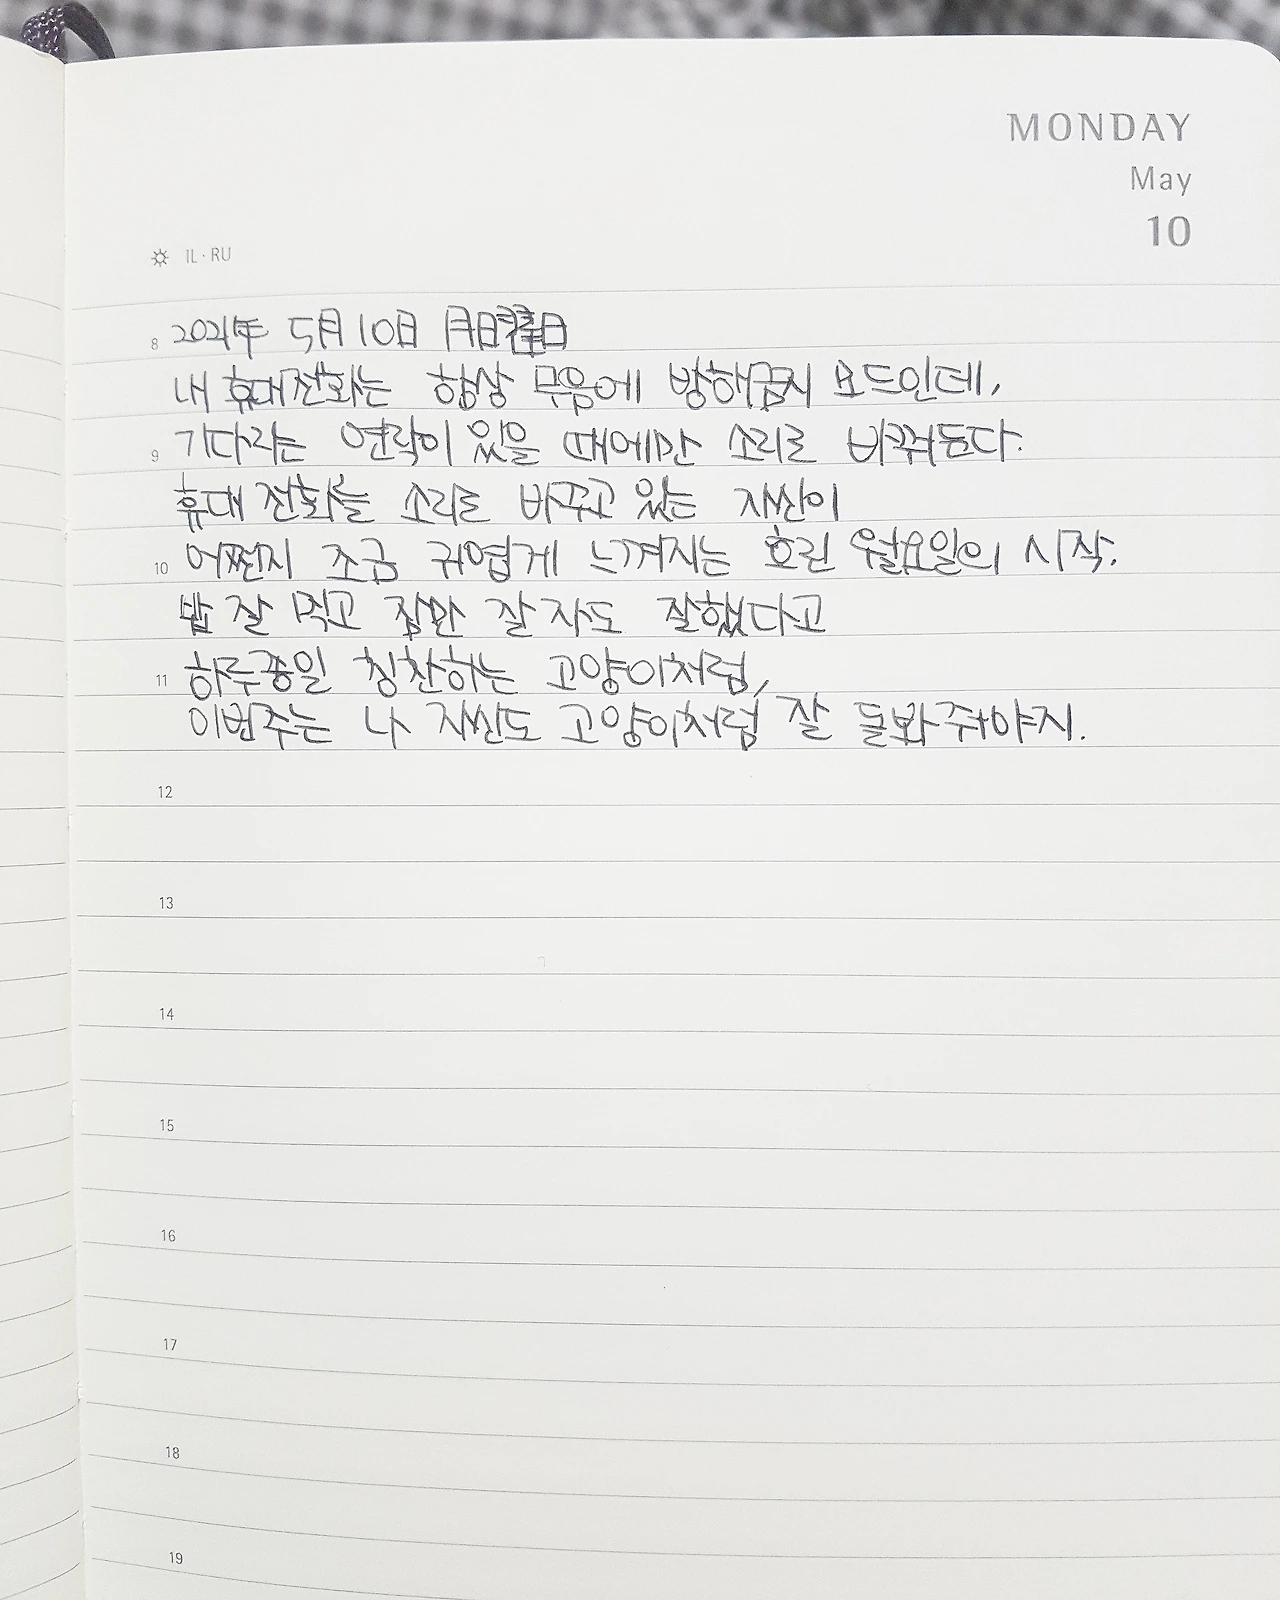 MONDAY
May
10
IL·RU
8 2021年 5月 10日 月曜日
내 휴대전화는 항상 무음에 방해금지 모드인데,
9 기다리는 연락이 있을 때에만 소리로 바꿔둔다.
휴대전화를 소리로 바꾸고 있는 자신이
10 어쩐지 조금 귀엽게 느껴지는 흐린 월요일의 시작.
밥 잘 먹고 잠만 잘 자도 잘했다고
11 하루종일 칭찬하는 고양이처럼,
이번주는 나 자신도 고양이처럼 잘 돌봐줘야지.
12
13
14
15
16
17
18
19